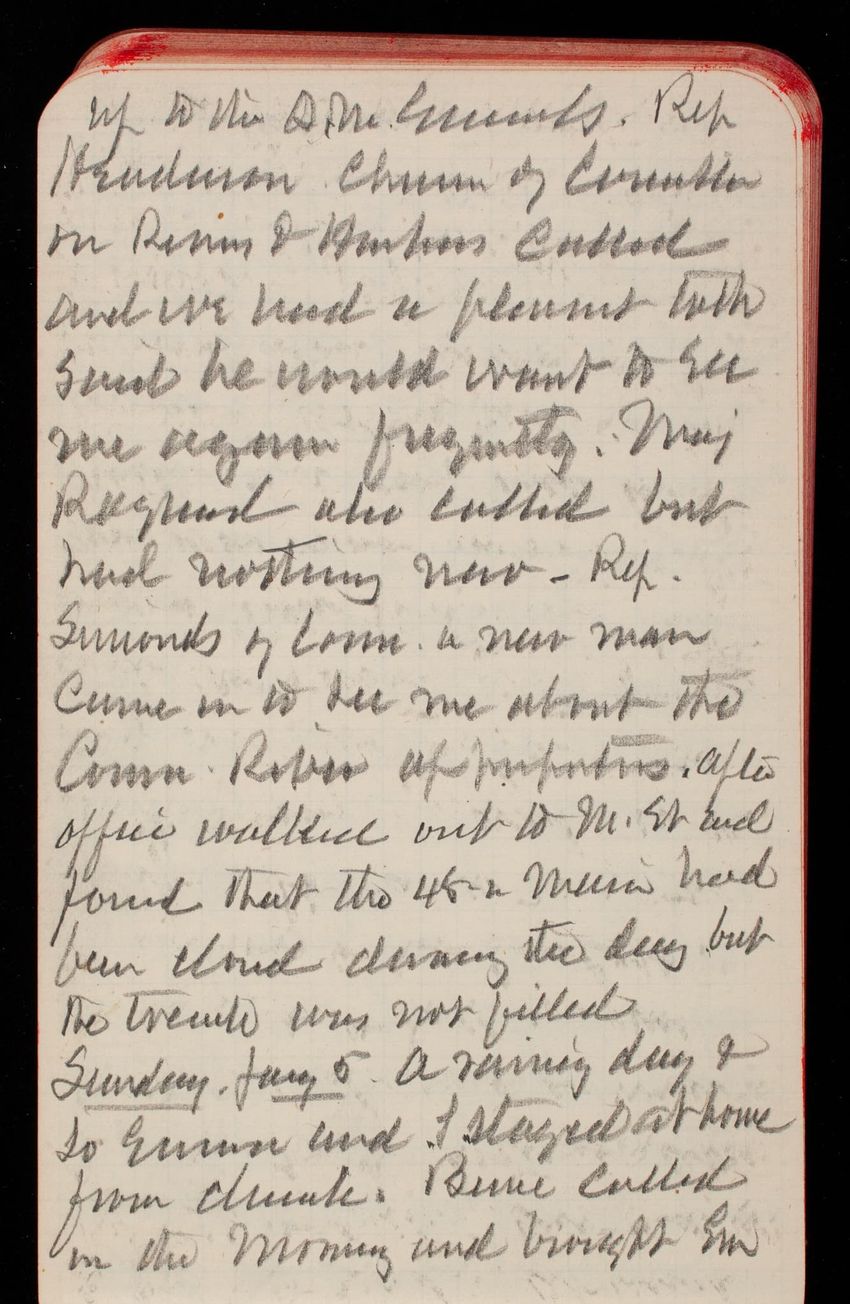 up to the Q.M. Generals. Rep
Henderson Chmn of Committee
on Rivers & Harbors called
and we had a pleasant talk
said he would want to see
me again frequently. Maj
Ragland also called but
had nothing new - Rep.
Simonds of Conn. a new man
came in to see me about the
Conn. River appropriations. after
office walked out to M. St and
found that the 48 in Main had
been closed during the day but
the trench was not filled
Sunday. Jany 5. A rainy day &
so Emma and I stayed at home
from church. Bune called
in the Morning and brought Em